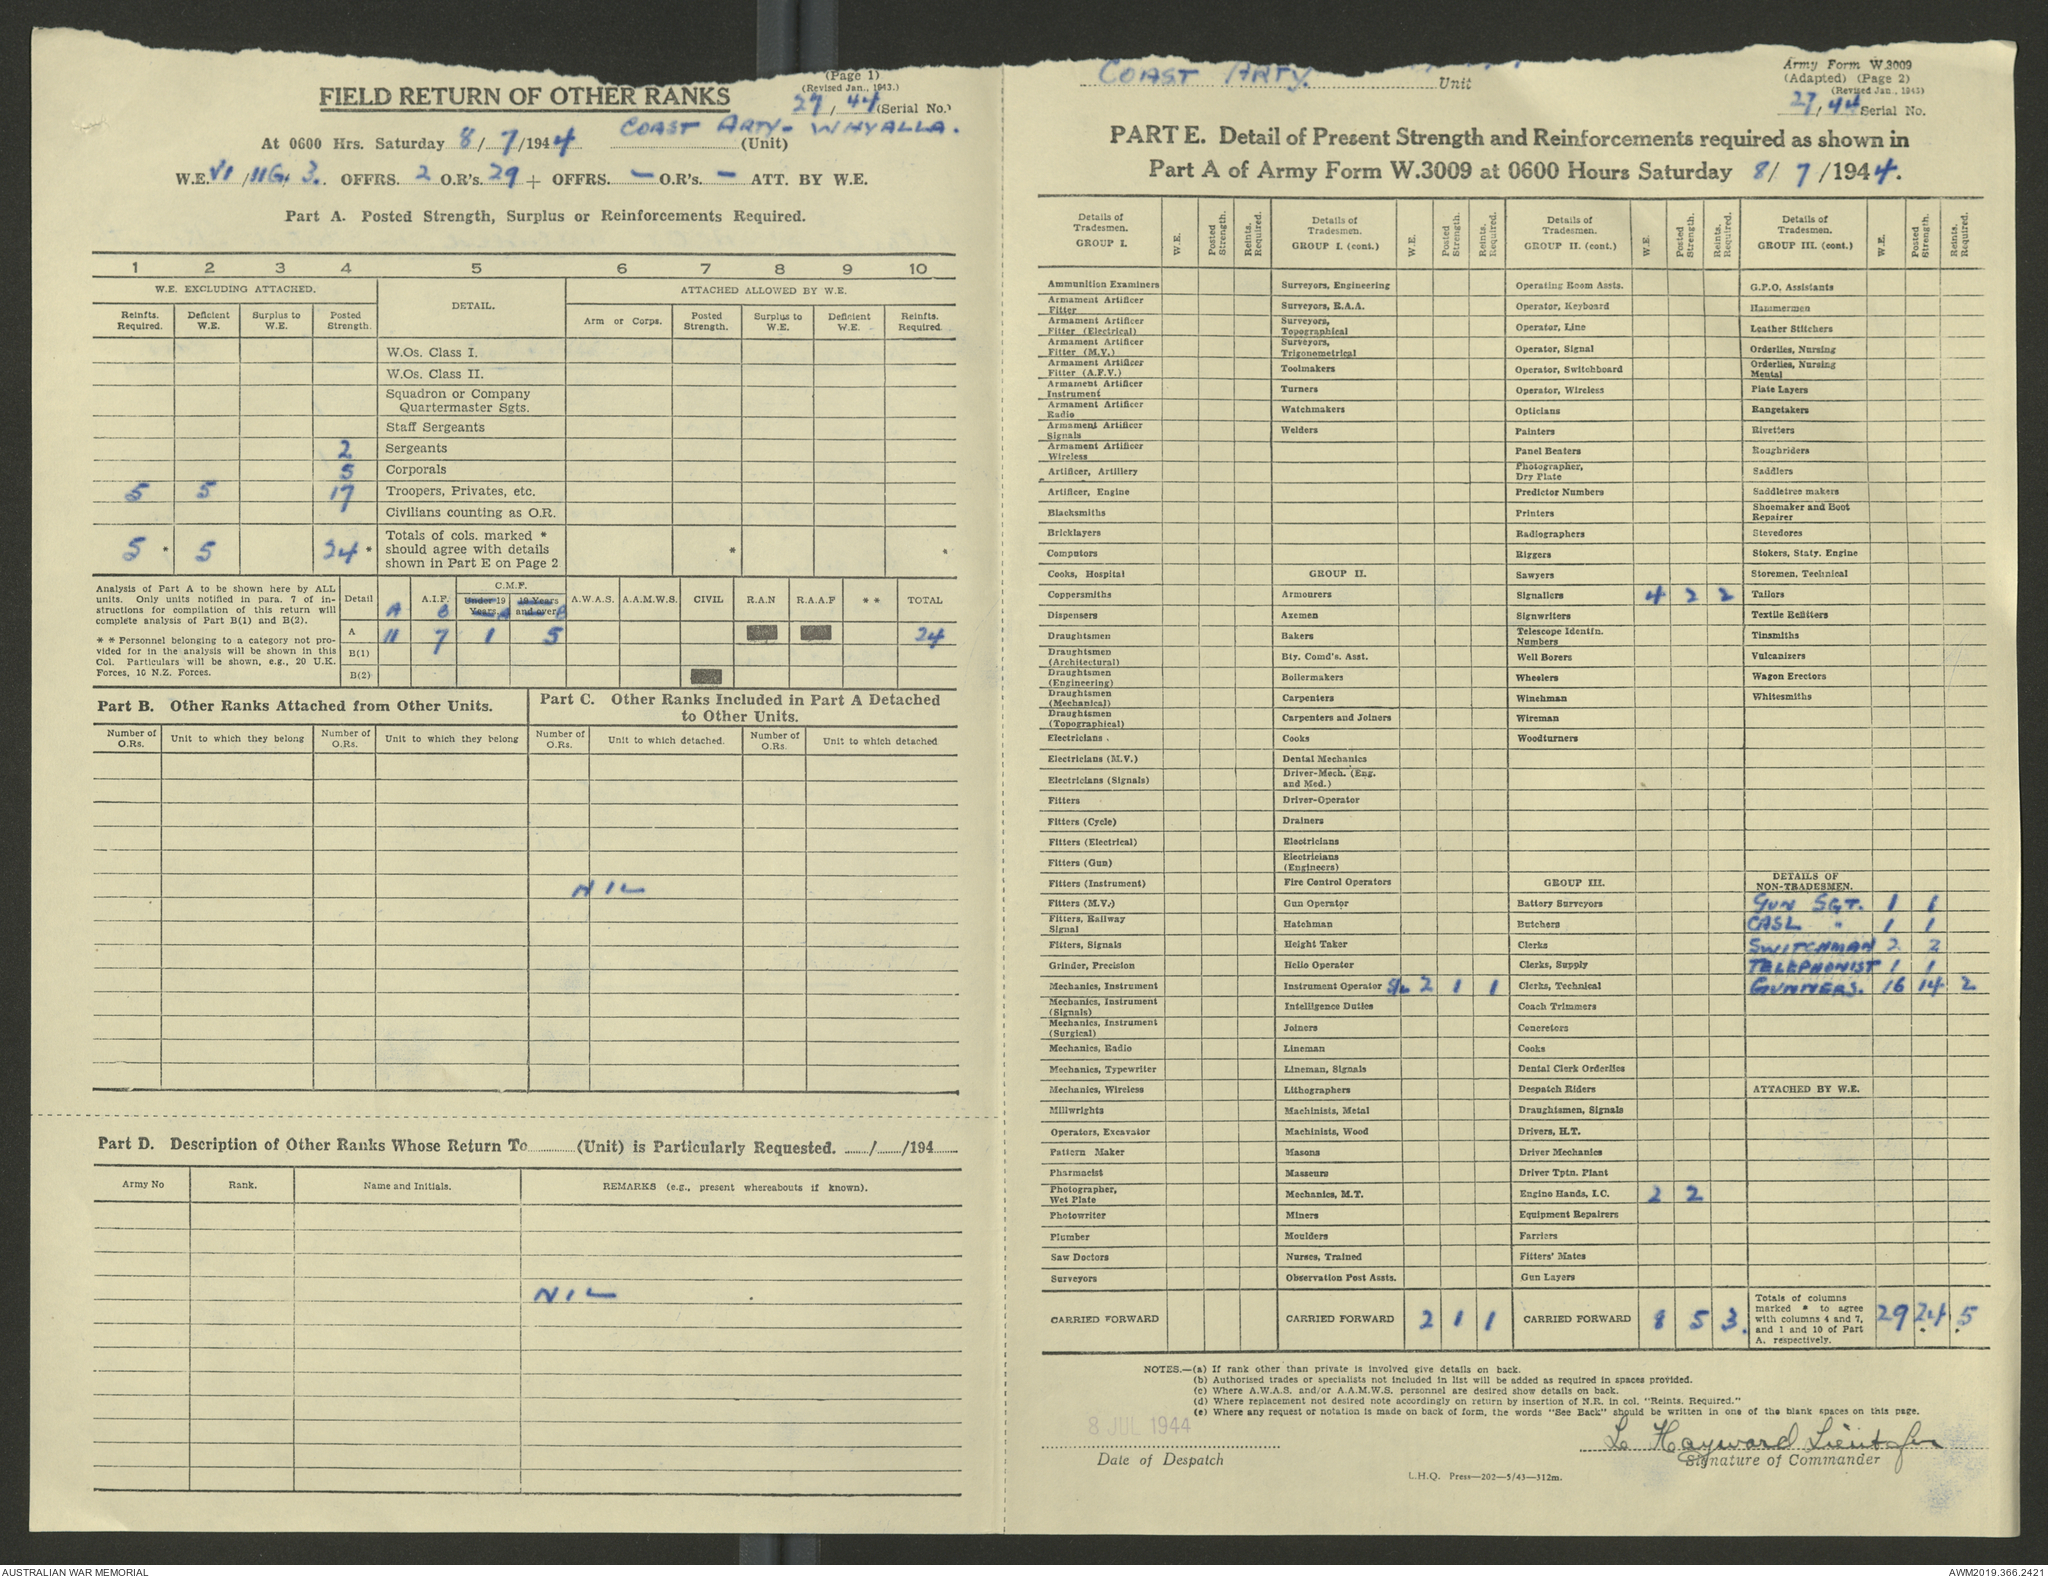 (Page 1)
(Revised Jan., 1943.)
FIELD RETURN OF OTHER RANKS
27/44 (Serial No.)
COAST ARTY- WHYALLA.
At 0600 Hrs. Saturday 8/7/1944 (Unit)
W.E. VI/11G/3. OFFRS. 2 O.R's. 29 + OFFRS. — O.R's. — ATT. BY W.E.
Part A. Posted Strength, Surplus or Reinforcements Required.
1 2 3 4 5 6 7 8 9 10
W.E. EXCLUDING ATTACHED. DETAIL. ATTACHED ALLOWED BY W.E.
Reinfts. Required. Deficient W.E. Surplus to W.E. Posted Strength. Arm or Corps. Posted Strength. Surplus to W.E. Deficient W.E. Reinfts. Required.
W.Os. Class I.
W.Os. Class II.
Squadron or Company
Quartermaster Sgts.
Staff Sergeants
2 Sergeants
5 Corporals
5 5 17 Troopers, Privates, etc.
Civilians counting as O.R.
5 * 5 24 * Totals of cols. marked * should agree with details shown in Part E on Page 2 * *
Analysis of Part A to be shown here by ALL
units. Only units notified in para. 7 of in-
structions for compilation of this return will
complete analysis of Part B(1) and B(2).
* * Personnel belonging to a category not pro-
vided for in the analysis will be shown in this
Col. Particulars will be shown, e.g., 20 U.K.
Forces, 10 N.Z. Forces.
Detail A.I.F. C.M.F. Under 19 Years. 19 Years and over A.W.A.S. A.A.M.W.S. CIVIL R.A.N R.A.A.F * * TOTAL
A B A B
A 11 7 1 5 24
B(1)
B(2)
Part B. Other Ranks Attached from Other Units.
Part C. Other Ranks Included in Part A Detached
to Other Units.
Number of O.Rs. Unit to which they belong Number of O.Rs. Unit to which they belong Number of O.Rs. Unit to which detached. Number of O.Rs. Unit to which detached
NIL
Part D. Description of Other Ranks Whose Return To (Unit) is Particularly Requested. / /194
Army No Rank. Name and Initials. REMARKS (e.g., present whereabouts if known).
NIL
COAST ARTY. Unit
Army Form W.3009
(Adapted) (Page 2)
(Revised Jan., 1943)
27/44 Serial No.
PART E. Detail of Present Strength and Reinforcements required as shown in
Part A of Army Form W.3009 at 0600 Hours Saturday 8/7/1944.
Details of Tradesmen. GROUP I. W.E. Posted Strength. Reints. Required.
Ammunition Examiners
Armament Artificer Fitter
Armament Artificer Fitter (Electrical)
Armament Artificer Fitter (M.V.)
Armament Artificer Fitter (A.F.V.)
Armament Artificer Instrument
Armament Artificer Radio
Armament Artificer Signals
Armament Artificer Wireless
Artificer, Artillery
Artificer, Engine
Blacksmiths
Bricklayers
Computors
Cooks, Hospital
Coppersmiths
Dispensers
Draughtsmen
Draughtsmen (Architectural)
Draughtsmen (Engineering)
Draughtsmen (Mechanical)
Draughtsmen (Topographical)
Electricians
Electricians (M.V.)
Electricians (Signals)
Fitters
Fitters (Cycle)
Fitters (Electrical)
Fitters (Gun)
Fitters (Instrument)
Fitters (M.V.)
Fitters, Railway Signal
Fitters, Signals
Grinder, Precision
Mechanics, Instrument
Mechanics, Instrument (Signals)
Mechanics, Instrument (Surgical)
Mechanics, Radio
Mechanics, Typewriter
Mechanics, Wireless
Millwrights
Operators, Excavator
Pattern Maker
Pharmacist
Photographer, Wet Plate
Photowriter
Plumber
Saw Doctors
Surveyors
CARRIED FORWARD
Details of Tradesmen. GROUP I. (cont.) W.E. Posted Strength. Reints. Required.
Surveyors, Engineering
Surveyors, R.A.A.
Surveyors, Topographical
Surveyors, Trigonometrical
Toolmakers
Turners
Watchmakers
Welders
GROUP II.
Armourers
Axemen
Bakers
Bty. Comd's. Asst.
Boilermakers
Carpenters
Carpenters and Joiners
Cooks
Dental Mechanics
Driver-Mech. (Eng. and Med.)
Driver-Operator
Drainers
Electricians
Electricians (Engineers)
Fire Control Operators
Gun Operator
Hatchman
Height Taker
Helio Operator
Instrument Operator S/L 2 1 1
Intelligence Duties
Joiners
Lineman
Lineman, Signals
Lithographers
Machinists, Metal
Machinists, Wood
Masons
Masseurs
Mechanics, M.T.
Miners
Moulders
Nurses, Trained
Observation Post Assts.
CARRIED FORWARD 2 1 1
Details of Tradesmen. GROUP II. (cont.) W.E. Posted Strength. Reints. Required.
Operating Room Assts.
Operator, Keyboard
Operator, Line
Operator, Signal
Operator, Switchboard
Operator, Wireless
Opticians
Painters
Panel Beaters
Photographer, Dry Plate
Predictor Numbers
Printers
Radiographers
Riggers
Sawyers
Signallers 4 2 2
Signwriters
Telescope Identfn. Numbers
Well Borers
Wheelers
Winchman
Wireman
Woodturners
GROUP III.
Battery Surveyors
Butchers
Clerks
Clerks, Supply
Clerks, Technical
Coach Trimmers
Concretors
Cooks
Dental Clerk Orderlies
Despatch Riders
Draughtsmen, Signals
Drivers, H.T.
Driver Mechanics
Driver Tptn. Plant
Engine Hands, I.C. 2 2
Equipment Repairers
Farriers
Fitters' Mates
Gun Layers
CARRIED FORWARD 8 5 3.
Details of Tradesmen. GROUP III. (cont.) W.E. Posted Strength. Reints. Required.
G.P.O. Assistants
Hammermen
Leather Stitchers
Orderlies, Nursing
Orderlies, Nursing Mental
Plate Layers
Rangetakers
Rivetters
Roughriders
Saddlers
Saddletree makers
Shoemaker and Boot Repairer
Stevedores
Stokers, Staty. Engine
Storemen, Technical
Tailors
Textile Refitters
Tinsmiths
Vulcanizers
Wagon Erectors
Whitesmiths
DETAILS OF NON-TRADESMEN.
GUN SGT. 1 1
CASL " 1 1
SWITCHMAN 2 2
TELEPHONIST 1 1
GUNNERS. 16 14 2
ATTACHED BY W.E.
Totals of columns marked * to agree with columns 4 and 7, and 1 and 10 of Part A, respectively. 29 24 5
NOTES.—(a) If rank other than private is involved give details on back.
(b) Authorised trades or specialists not included in list will be added as required in spaces provided.
(c) Where A.W.A.S. and/or A.A.M.W.S. personnel are desired show details on back.
(d) Where replacement not desired note accordingly on return by insertion of N.R. in col. "Reints. Required."
(e) Where any request or notation is made on back of form, the words "See Back" should be written in one of the blank spaces on this page.
8 JUL 1944
Date of Despatch
L Hayward Lieut for
Signature of Commander
L.H.Q. Press—202—5/43—312m.
AUSTRALIAN WAR MEMORIAL
AWM2019.366.2421